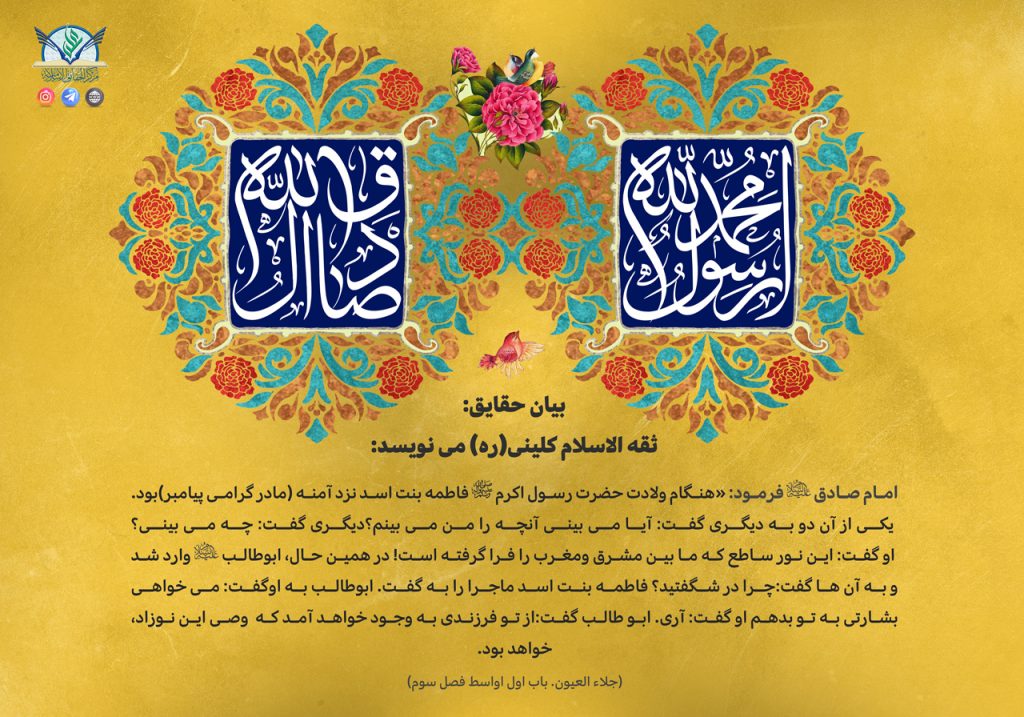 مرکز الحقائق الاسلامیه
محمد رسول الله
صادق ال الله
بیان حقایق:
ثقه الاسلام کلینی(ره) می نویسد:
امام صادق علیه السلام فرمود: «هنگام ولادت حضرت رسول اکرم ﷺ فاطمه بنت اسد نزد آمنه (مادر گرامی پیامبر)بود.
یکی از آن دو به دیگری گفت: آیا می بینی آنچه را من می بینم؟دیگری گفت: چه می بینی؟
او گفت: این نور ساطع که ما بین مشرق ومغرب را فرا گرفته است! در همین حال، ابوطالب علیه السلام وارد شد
و به آن ها گفت:چرا در شگفتید؟ فاطمه بنت اسد ماجرا را به گفت. ابوطالب به اوگفت: می خواهی
بشارتی به تو بدهم او گفت: آری. ابو طالب گفت:از تو فرزندی به وجود خواهد آمد که وصی این نوزاد،
خواهد بود.
(جلاء العیون. باب اول اواسط فصل سوم)